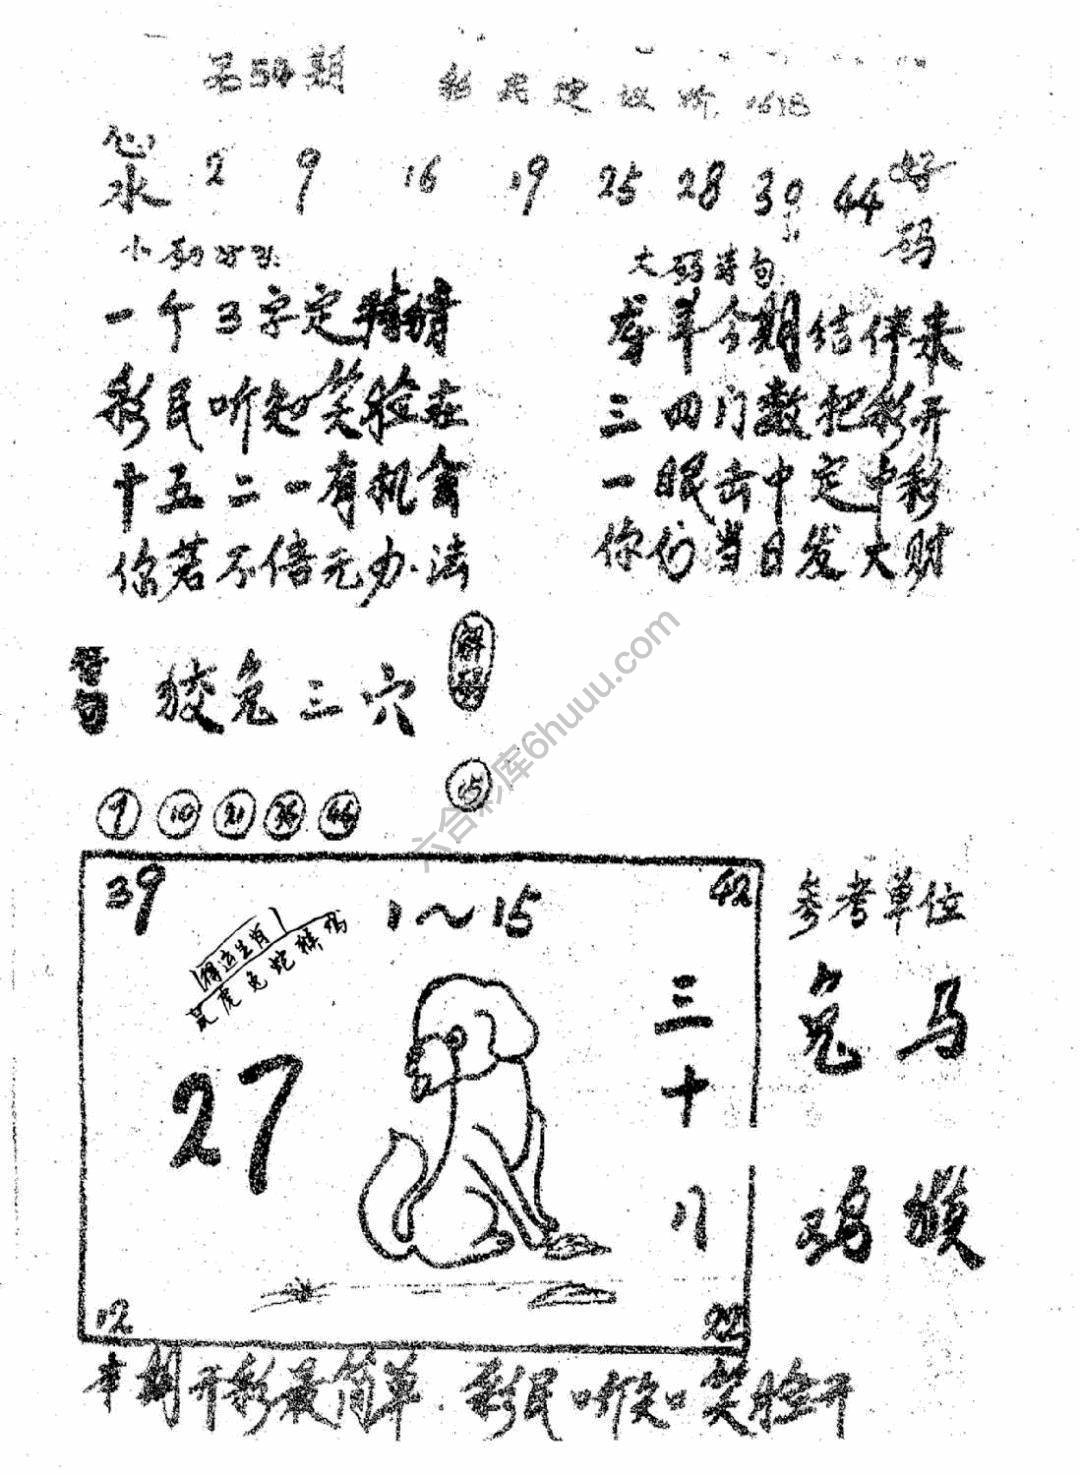 第54期
心水 2 9 16 19 25 28 39 44 好码
大码诗句
一个3字定猜猜
彩民听知笑脸在
十五二一有机会
你若不信无办法
今期结伴来
三四门数把彩开
一眼击中定中彩
你们当日发大财
狡兔三穴
解
7 10 21 36 44
15
39 1~15 42
得运生肖
鼠虎兔蛇猴鸡
27
三十八
12 22
参考单位
兔 马
鸡 猴
本期开彩最简单.彩民听知笑脸开
六合彩库6huuu.com